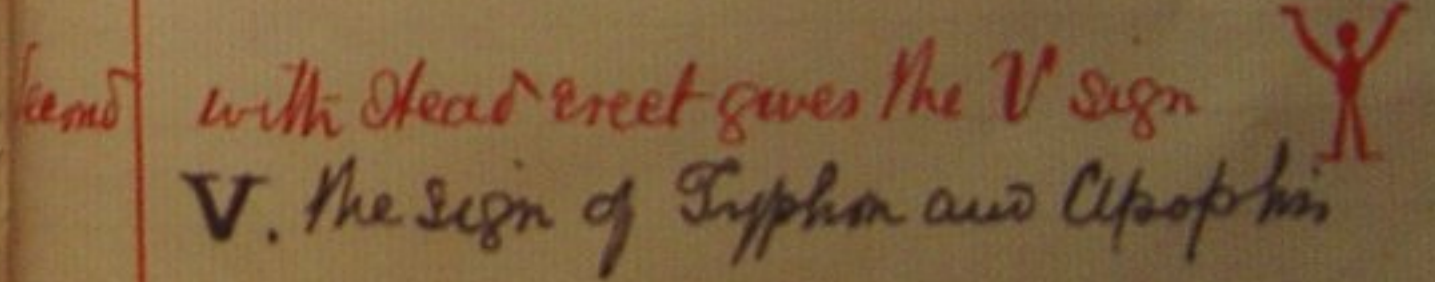 with Head erect gives the V sign
V. The sign of Typhon and Apophis